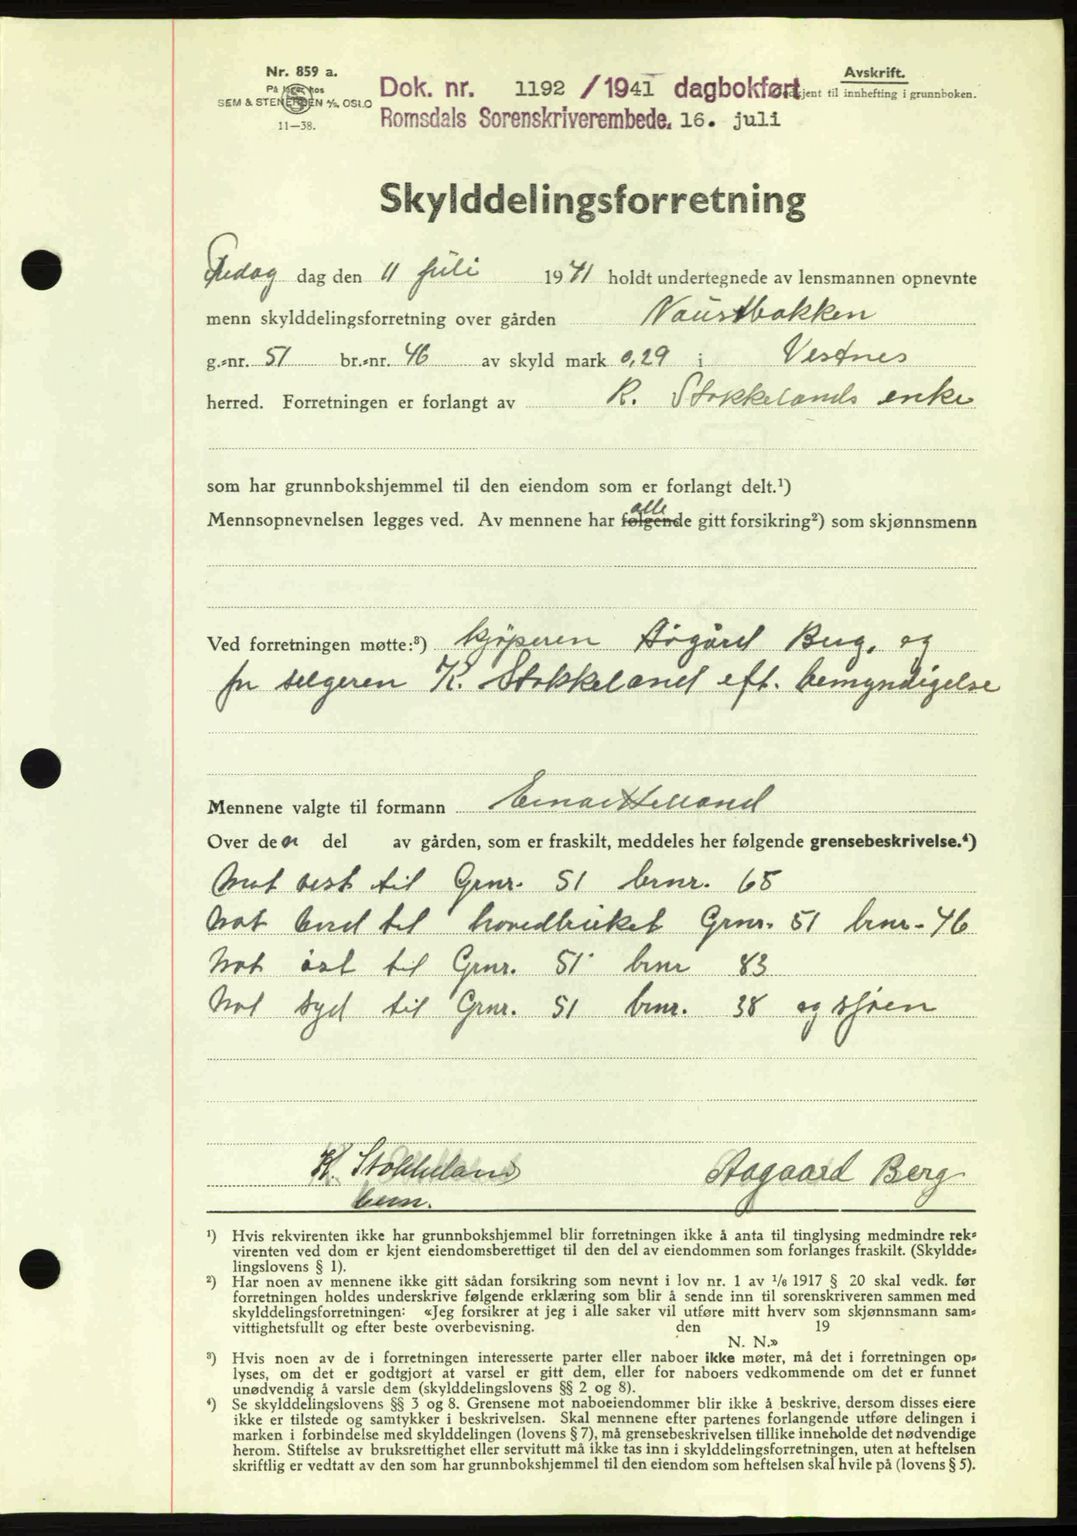 Nr. 859 a.
På lager hos
SEM & STENERSEN A/S, OSLO
11—38.
Dok. nr. 1192 /1941 dagbokført
Romsdals Sorenskriverembede. 16. juli
Avskrift.
Godkjent til innhefting i grunnboken.
Skylddelingsforretning
Fredag dag den 11 juli 1941 holdt undertegnede av lensmannen opnevnte
menn skylddelingsforretning over gården Naustbakken
g.-nr. 51 br.-nr. 46 av skyld mark 0,29 i Vestnes
herred. Forretningen er forlangt av K. Stokkelands enke
som har grunnbokshjemmel til den eiendom som er forlangt delt.¹)
alle
Mennsopnevnelsen legges ved. Av mennene har følgende gitt forsikring²) som skjønnsmenn
Ved forretningen møtte:³) kjøperen Aågård Berg, og
for selgeren K. Stokkeland eft. bemyndigelse
Mennene valgte til formann Einar Helland
Over den del av gården, som er fraskilt, meddeles her følgende grensebeskrivelse.⁴)
Mot vest til Grnr. 51 brnr. 65
Mot nord til hovedbruket Grnr. 51 brnr. 46
Mot øst til Grnr. 51 brnr 83
Mot syd til Grnr. 51 brnr. 38 og sjøen
K. Stokkeland Aagaard Berg
bem.
¹) Hvis rekvirenten ikke har grunnbokshjemmel blir forretningen ikke å anta til tinglysing medmindre rek-
virenten ved dom er kjent eiendomsberettiget til den del av eiendommen som forlanges fraskilt. (Skyldde-
lingslovens § 1).
²) Har noen av mennene ikke gitt sådan forsikring som nevnt i lov nr. 1 av 1/6 1917 § 20 skal vedk. før
forretningen holdes underskrive følgende erklæring som blir å sende inn til sorenskriveren sammen med
skylddelingsforretningen: «Jeg forsikrer at jeg i alle saker vil utføre mitt hverv som skjønnsmann sam-
vittighetsfullt og efter beste overbevisning. den 19
N. N.»
³) Hvis noen av de i forretningen interesserte parter eller naboer ikke møter, må det i forretningen op-
lyses, om det er godtgjort at varsel er gitt dem, eller for naboers vedkommende om det er funnet
unødvendig å varsle dem (skylddelingslovens §§ 2 og 8).
⁴) Se skylddelingslovens §§ 3 og 8. Grensene mot naboeiendommer blir ikke å beskrive, dersom disses eiere
ikke er tilstede og samtykker i beskrivelsen. Skal mennene efter partenes forlangende utføre delingen i
marken i forbindelse med skylddelingen (lovens § 7), må grensebeskrivelsen tillike inneholde det nødvendige
herom. Stiftelse av bruksrettighet eller servitutt må ikke tas inn i skylddelingsforretningen, uten at heftelsen
skriftlig er vedtatt av den som har grunnbokshjemmel til den eiendom som heftelsen skal hvile på (lovens § 5).